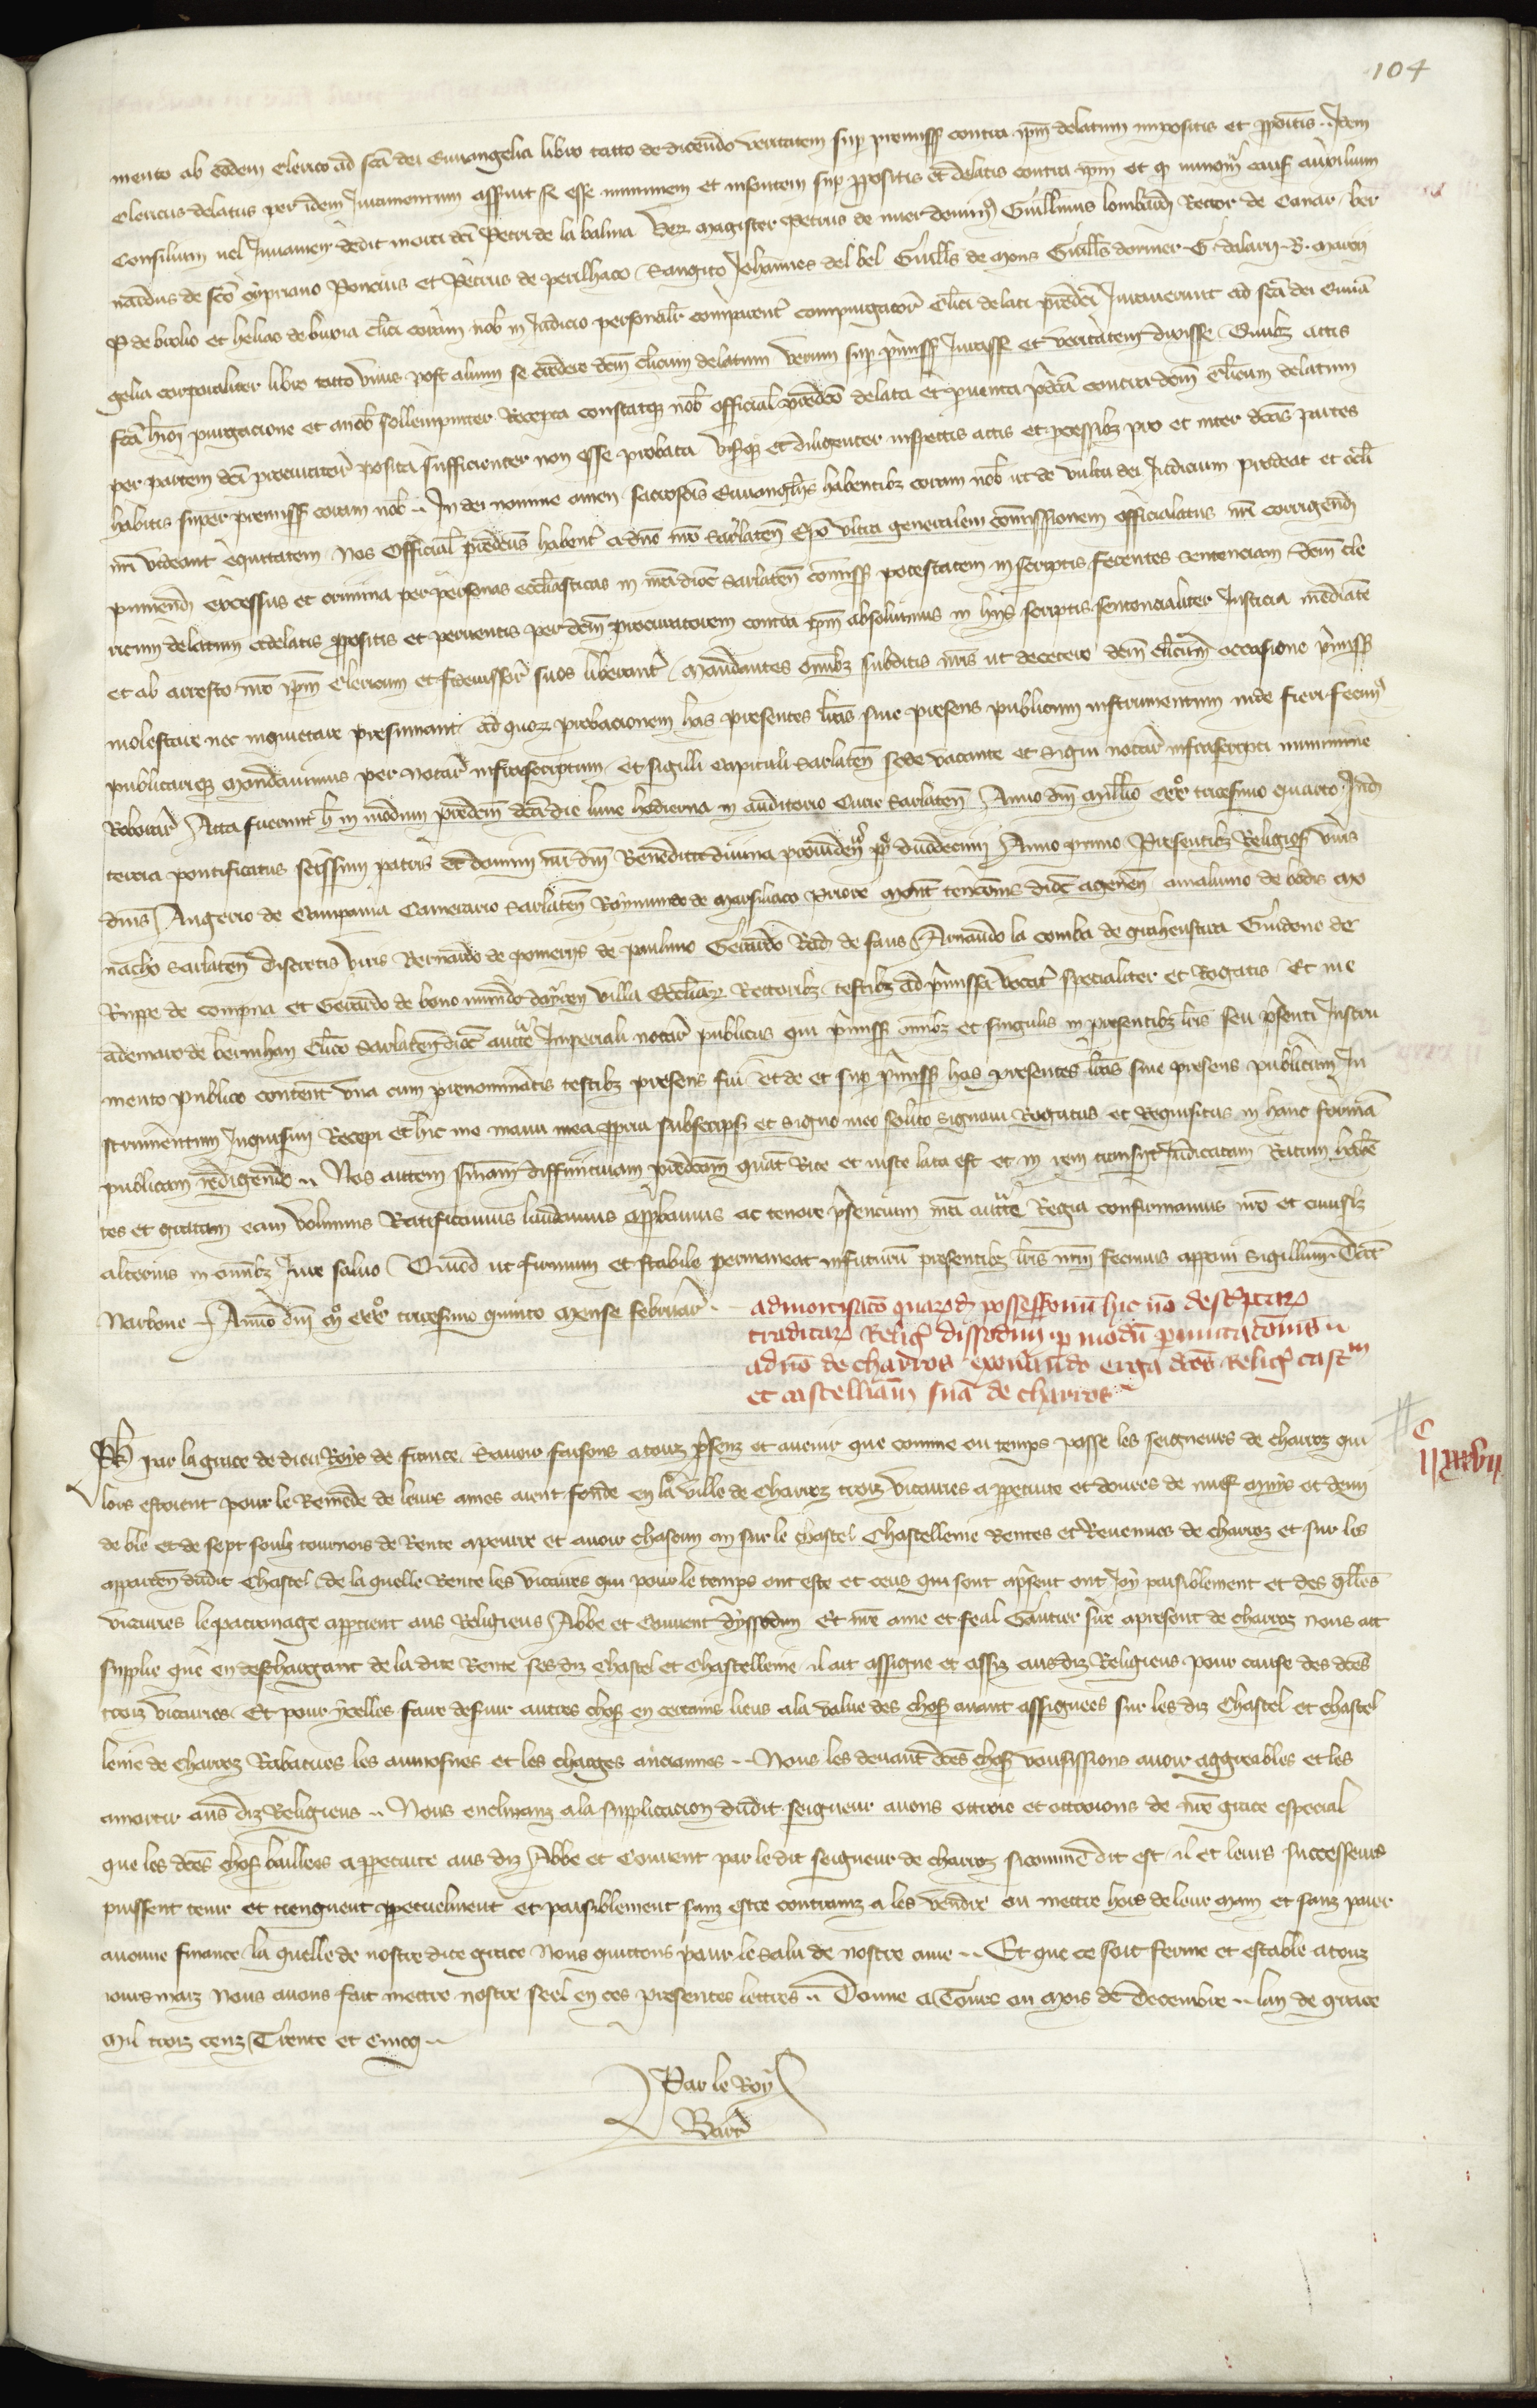 104
mento ab eodem clerico ad sca dei Euuangelia libro tacto de dicendo veritatem sup premiss contra ipm delatum impositis et ppoitis. Idem
clericus delatus per idem Iuramentum assuit se esse immunem et insontem sup ppositis et delatis contra ipm et q nunqm eius auxilium
consilium uel Iuuamen dedit morti dci Petri de la balma Ver magister Petrus de dominq Guillmus lombardi Rector de Canar. ber
nardus de sco cypriano Poncius et Petrus de perilhaco Sangiro Johannes del bel Guills de mons Guills dormer. G. dalary. B. maury
P de brolio et helias de buxia clici coram nob in Iudicio personalr comparent compurgator clici delati predci Iurauerunt ad sca dei Euua
gelia corporaliter libro tacto vnus post alium se credere dcm clicum delatum verum sup pmiss Iurasse et veritatem dixisse. Quibz actis
fca hmoi purgacione et a nob sollempniter Recepta constatqz nob official predco delata et puenta pdca contra dcm clicum delatum
per partem dci procuratoris posita sufficienter non esse probata visqz et diligenter inspectis actis et pcessibz pro et inter dcas partes
habitis super premiss coram nob. In dei nomine amen sacrosctis Euuanglijs habentibz coram nob ut de vultu dei Iudicium prodeat et ocli
nri videant equitatem Nos Official predcus habent a dno nro Sarlaten Epo vltra generalem comissionem officialatus nri corrigend
puniend excessus et crimina per personas ecclasticas in nra dioc Sarlaten comiss potestatem in scriptis ferentes sentenciam dcm cle
ricum delatum a delatis ppositis et peruentis per dcm procuratorem contra ipm absoluimus in hijs scriptis sentencialiter Iusticia mediante
et ab arresto nro ipm clericum et fideiussor suos liberant. Mandantes omibz subditis nris ut decetero dcm clicum occasione pmiss
molestare nec inquietare presumant. ad quor probacionem has presentes lras siue presens publicum instrumentum inde fieri fecimq
publicariqz mandauimus per notar infrascriptum et sigilli capituli Sarlaten sede vacante et signi notar infrascripti munimine
Roborar Acta fuerunt h in modum predcm dca die lune hodierna in auditorio Curie Sarlaten Anno dni millio CCCo tricesimo quarto Ind
tercia pontificatus scissimi patris et domini nri dni Benedicti diuina prouidenc pp duodecimi Anno primo Presentibz Religios viris
dnis Augerio de Campania Camerario Sarlaten Raymundo de Marsiliaco Priore Mont tencomis dioc agenen amaluino de bodis mo
nacho Sarlaten discretis viris Bernardo de pomerijs de paulino Gerardo Rad de saus Arnaudo la comba de graheustura Guidone de
Ruppe de compia et Gerardo de bono mundo dayren villa Ecclar Rectoribz. testibz ad pmissa vocat specialiter et Rogatis. Et me
ademaro de bermhan clico Sarlaten dioc aucte Imperiali notar publicus qui pmiss omibz et singulis in presentibz lris seu psenti Instru
mento publico content vna cum prenominatis testibz presens fui et de et sup pmiss has presentes lras siue presens publicum In
strumentum Inquisiui Recepi et hic me manu mea ppria subscripsi et signo meo solito signaui Rogatus et Requisitus in hanc forma
publicam redigendo. Nos autem smam diffinitiuam predcam quat Rite et iuste lata est et in rem transijt Iudicatam Ratam habe
tes et gratam eam volumus Ratificamus laudamus appbamus ac tenore psencium nra aucte Regia confirmamus nro et cuiuslz
alterius in omibz Iure saluo Quod ut firmum et stabile permaneat infuturu presentibz lris nrm fecimus apponi sigillum. Dat
Narbone. Anno dni mo CCCo tricesimo quinto mense februar.
admortisaco quarud possessionu hic no desciptar
traditar Religs dissodun p modu pmutatoms
ad no de charros exonando erga dcos Religs cast m
et castellaiam sua de charros
c
ii xxxvii
Ph par la grace de dieu Roys de france. Sauoir faisons a touz psenz et auenir que comme ou temps passe les seigneurs de Charroz qui
lors estoient pour le Remede de leurs ames aient fonde en la ville de Charroz trois vicairies a ppetuite et douees de neuf muys et demi
de ble et de sept soulz tournois de Rente a penre et auoir chascun an sur le chastel Chastellenie Rentes et Reuenues de charroz et sur les
apparten dudit Chastel. de la quelle Rente les vicaires qui pour le temps ont este et ceus qui sont apsent ont Joy paisiblement et des qlles
vicairies le patronage apptient aus Religieus Abbe et Couuent dyssodun Et nre ame et feal Gautier sire apresent de charroz nous ait
supplie que en deschargant de la dite Rente ses diz Chastel et Chastellenie. il ait assigne et assiz ausdiz Religieus pour cause des dces
trois vicairies. Et pour ycelles faire desuir autres chos en certains lieus a la value des chos auant assignees sur les diz Chastel et chastel
lenie de Charroz Rabatues les aumosnes et les charges anciannes. Nous les deuant dces chos vousissions auoir aggreables et les
amortir aus diz Religieus. Nous enclinanz a la supplicacion dudit seigneur auons ottroie et ottroions de nre grace especial
que les dces chos baillees a ppetuite aus diz Abbe et Couuent par le dit seigneur de charroz sicomme dit est. il et leurs successeurs
puissent tenir et tiengnent ppetuelment et paisiblement sanz estre contrainz a les vendre ou mettre hors de leur main et sanz paier
aucune finance. la quelle de nostre dite grace nous quittons pour le salu de nostre ame. Et que ce soit ferme et estable a touz
iours maiz Nous auons fait mettre nostre seel en ces presentes lettres. Donne a Tours ou mois de Decembre. lan de grace
Mil trois cenz Trente et Cincq.
Par le Roy
Barr